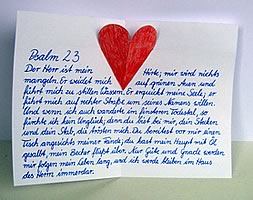 Psalm 23
Der Herr ist mein Hirte; mir wird nichts
mangeln. Er weidet mich auf grünen Auen und
führt mich zu stillen Wassern. Er erquickt meine Seele; er
führt mich auf rechter Straße um seines Namens willen.
Und wenn ich auch wanderte im finsteren Todestal, so
fürchte ich kein Unglück; denn du bist bei mir, dein Stecken
und dein Stab, die trösten mich. Du bereitest vor mir einen
Tisch angesichts meiner Feinde; du hast mein Haupt mit Öl
gesalbt, mein Becher fließt über. Nur Güte und Gnade werden
mir folgen mein Leben lang, und ich werde bleiben im Haus
des Herrn immerdar.